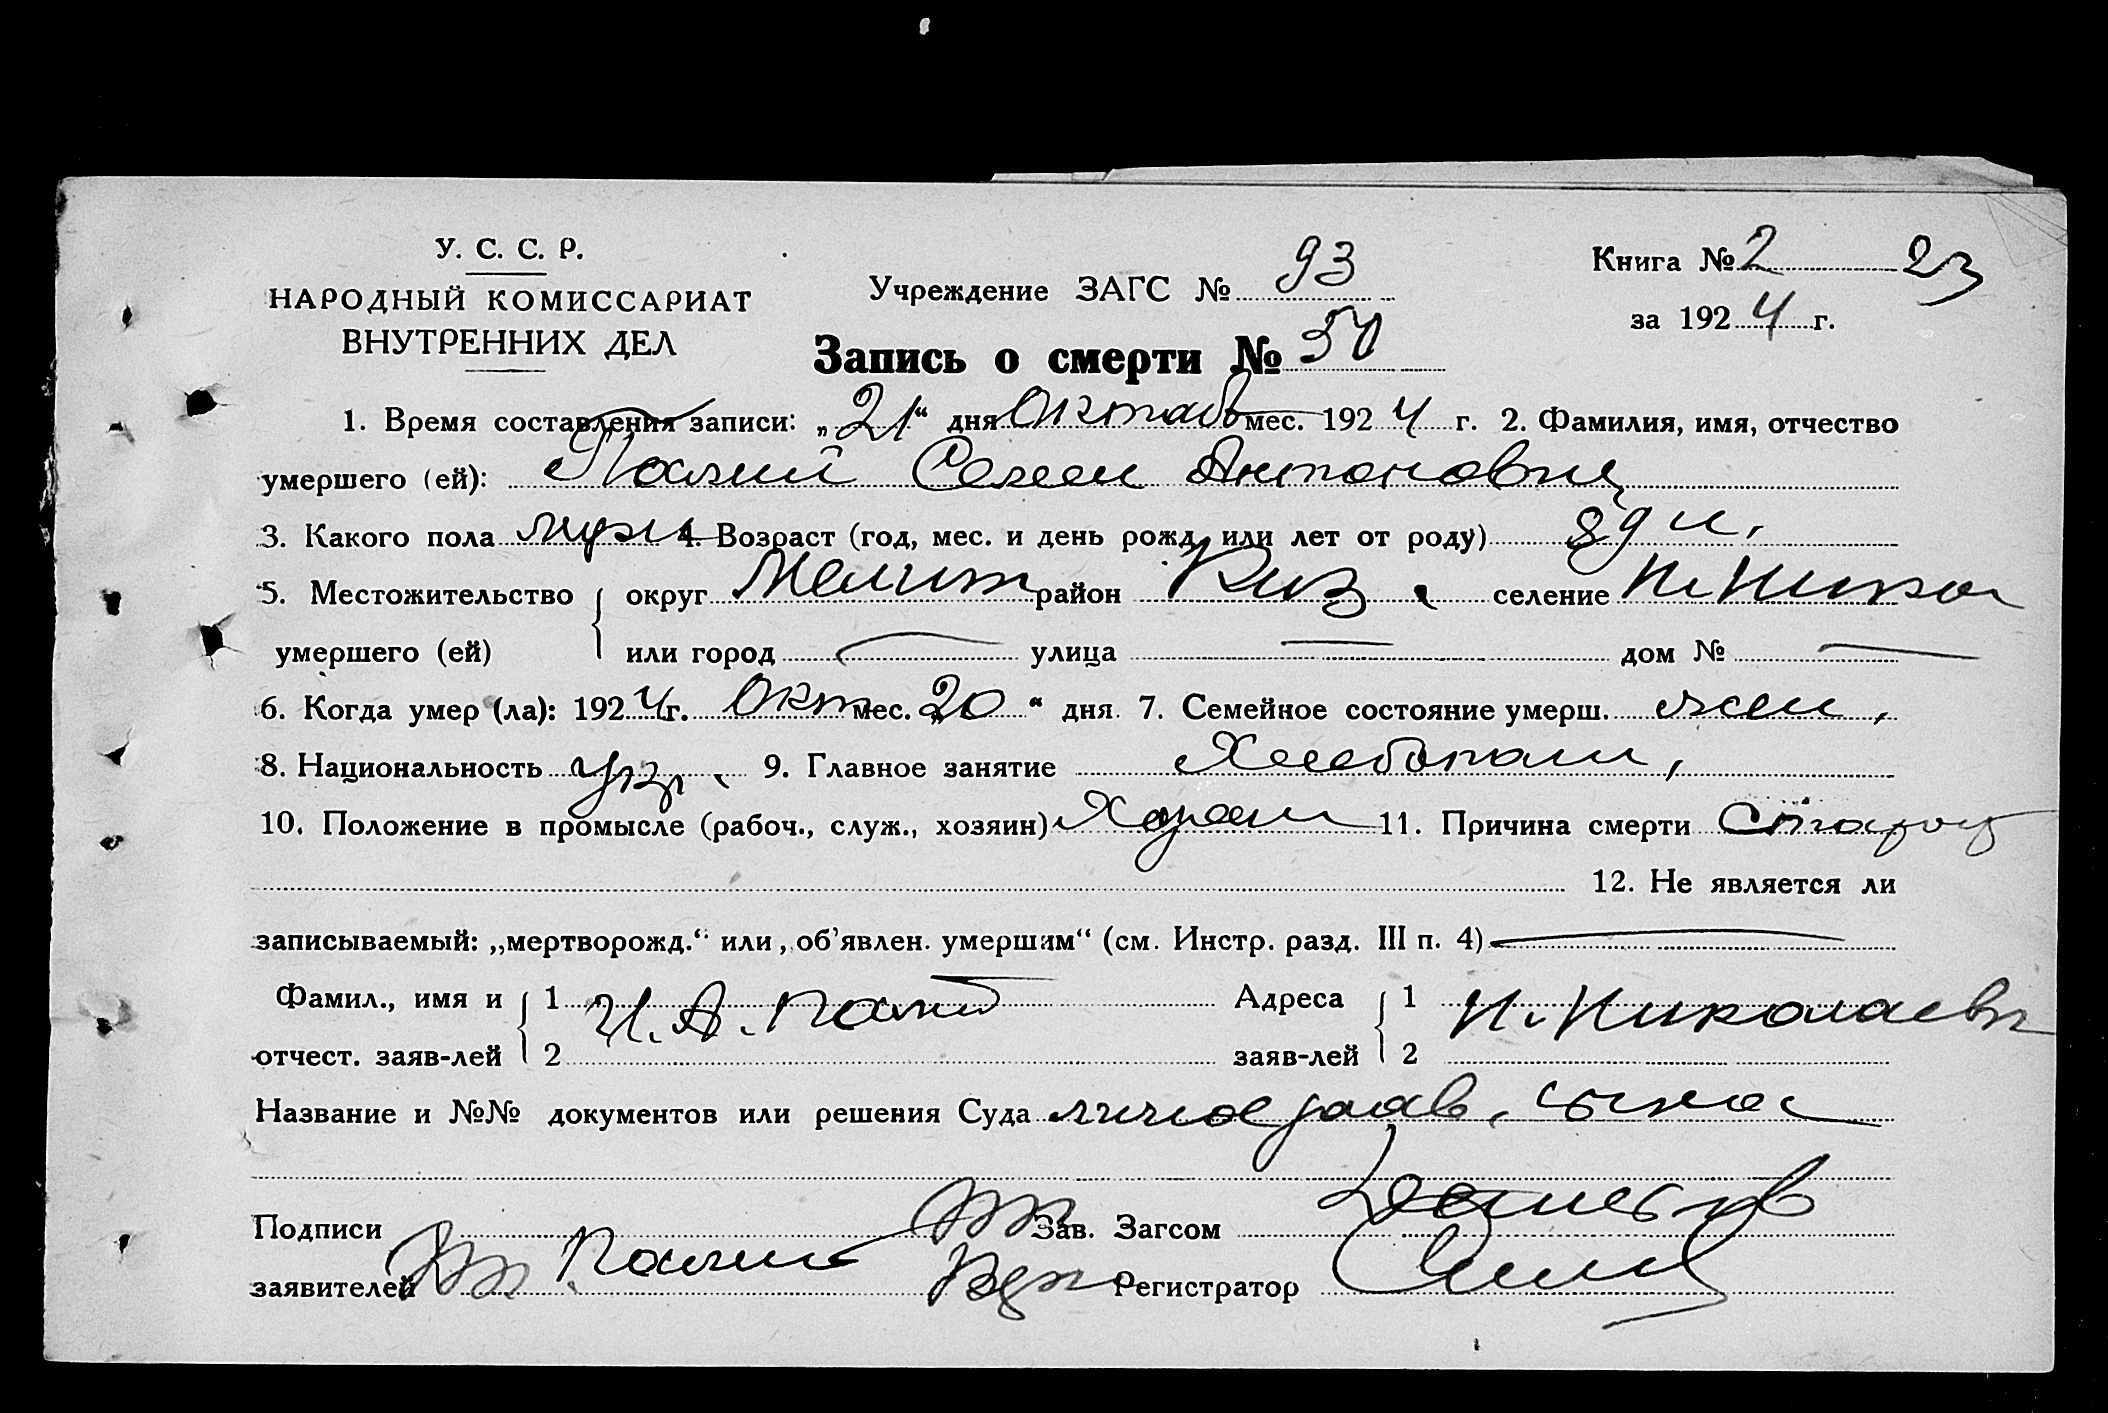 У. С. С. Р.
НАРОДНЫЙ КОМИССАРИАТ
ВНУТРЕННИХ ДЕЛ
Учреждение ЗАГС № 93
Книга № 2 23
за 1924 г.
Запись о смерти № 50
1. Время составления записи: „21“ дня Октяб мес. 1924 г. 2. Фамилия, имя, отчество
умершего (ей): Палий Семен Антонович
3. Какого пола муж 4. Возраст (год, мес. и день рожд. или лет от роду)
5. Местожительство округ Мелит район Киз. селение Н. Никол
умершего (ей) или город — улица — дом № —
6. Когда умер (ла): 1924 г. Окт мес. „20“ дня. 7. Семейное состояние умерш. жен,
8. Национальность укр. 9. Главное занятие Хлебопаш,
10. Положение в промысле (рабоч., служ., хозяин) Хозяин 11. Причина смерти Старост
12. Не является ли
записываемый: „мертворожд.“ или „об’явлен. умершим“ (см. Инстр. разд. III п. 4) —
Фамил., имя и 1 И. А. Палий Адреса 1 Н. Николаевк
отчест. заяв-лей 2 заяв-лей 2
Название и №№ документов или решения Суда личное заяв. сына
Подписи Зав. Загсом
заявителей Палий Регистратор